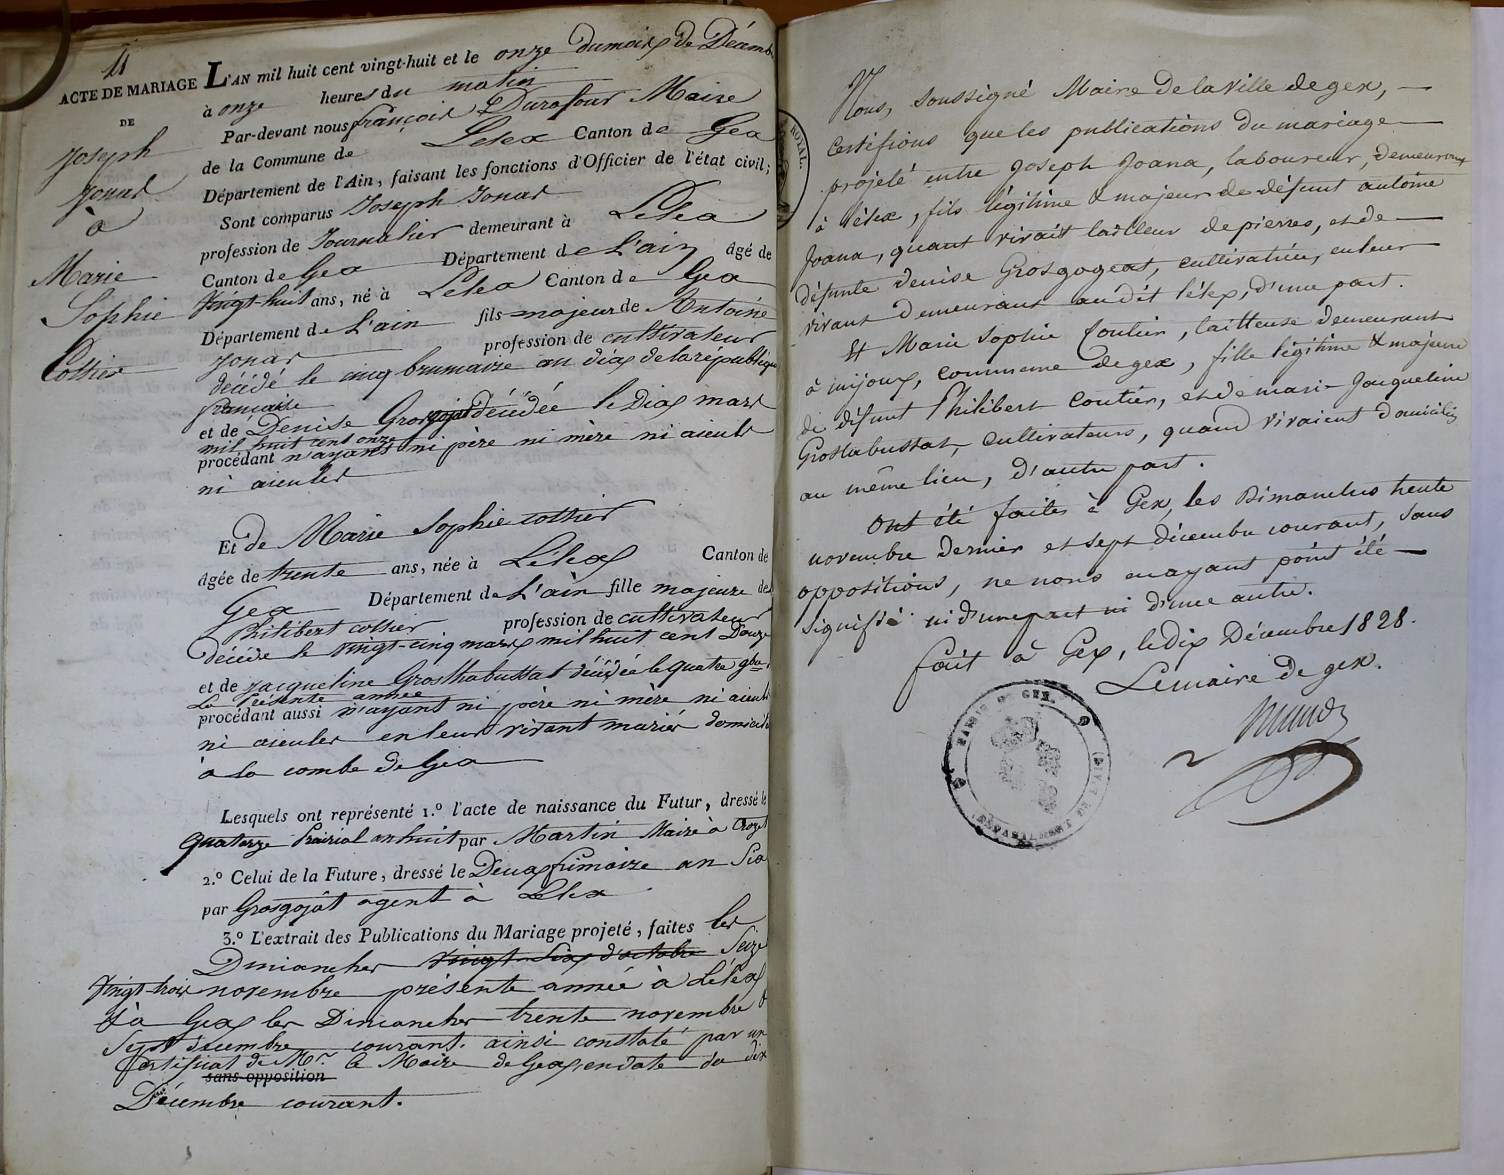 11
ACTE DE MARIAGE
DE
Joseph
Jonas
à
Marie
Sophie
Cottier
L'AN mil huit cent vingt-huit et le onze du mois de Décemb
à onze heures du matin
Par-devant nous françois Durafour Maire
de la Commune de Lelex Canton de Gex
Département de l'Ain, faisant les fonctions d'Officier de l'état civil;
Sont comparus Joseph Jonas
profession de Journalier demeurant à Lelex
Canton de Gex Département de L'ain âgé de
Vingt-huit ans, né à Lelex Canton de Gex
Département de L'ain fils majeur de Antoine
Jonas profession de cultivateur
décédé le cinq brumaire an dix de la république
francaise
et de Denise décédée le Dix mars
mil huit cent onze
procédant n'ayant ni père ni mère ni aieuls
ni aieules
Et de Marie Sophie cottier
âgée de trente ans, née à Lélex Canton de
Gex Département de L'ain fille majeure de
Philibert cottier profession de cultivateur
décédé le vingt-cinq mars mil huit cent Douze
et de Jacqueline Grosthabussat décédée le quatre 9bre
La présente année
procédant aussi n'ayant ni père ni mère ni aieuls
ni aieules en leur vivant mariés domicilié
à La combe de Gex
Lesquels ont représenté 1.º l'acte de naissance du Futur, dressé le
quatorze Prairial an huit par Martin Maire à Crozet
2.º Celui de la Future, dressé le Deux frimaire an Six
par Grosgojat agent à Lelex
3.º L'extrait des Publications du Mariage projeté, faites les
Dimanches vingt-Six d'octobre Seize
Vingt-trois novembre présente année à Lélex
& à Gex les Dimanches trente novembre &
Sept décembre courant. ainsi constaté par un
Certificat de Mr le Maire de Gex en date du dix
sans opposition
Décembre courant.
ROYAL.
Nous, soussigné Maire de la Ville de gex,
Certifions que les publications du mariage
projeté entre Joseph Joana, laboureur, demeurant
à lélex, fils légitime & majeur de défunt antoine
Joana, quant vivait tailleur de pierres, et de
défunte denise Grosgogeat, cultivatrice, en leur
vivant demeurant au dit lélex, d'une part.
Et Marie Sophie Coutier, tailleuse demeurant
à mijoux, commune de gex, fille légitime & majeure
de défunt Philibert Coutier, et de marie Jacqueline
Grostabussat, cultivateurs, quand vivaient domiciliés
au même lieu, d'autre part.
Ont été faites à Gex, les Dimanches trente
novembre dernier et sept décembre courant, sans
oppositions, ne nous en ayant point été
signifié ni d'une part ni d'une autre.
fait à Gex, le dix Décembre 1828.
Le maire de gex.
MAIRIE DE GEX